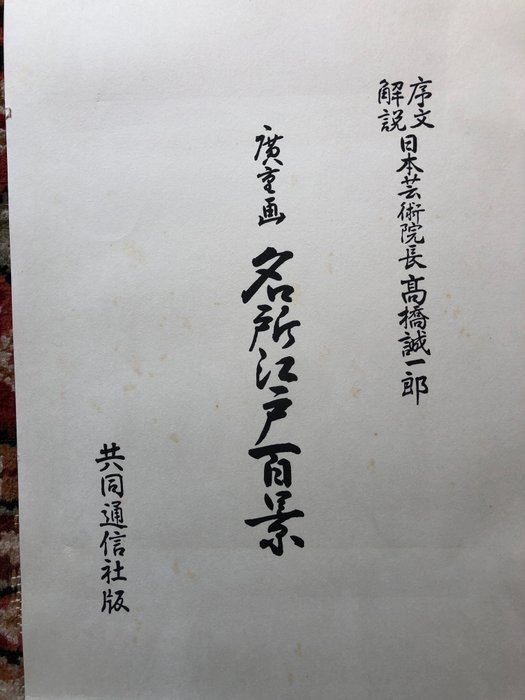 序文
解説
日本芸術院長 高橋誠一郎
廣重画 名所江戸百景
共同通信社版